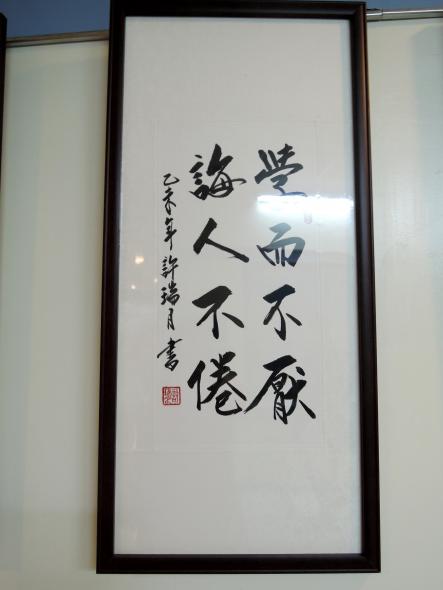 學而不厭
誨人不倦
乙未年 許瑞月 書